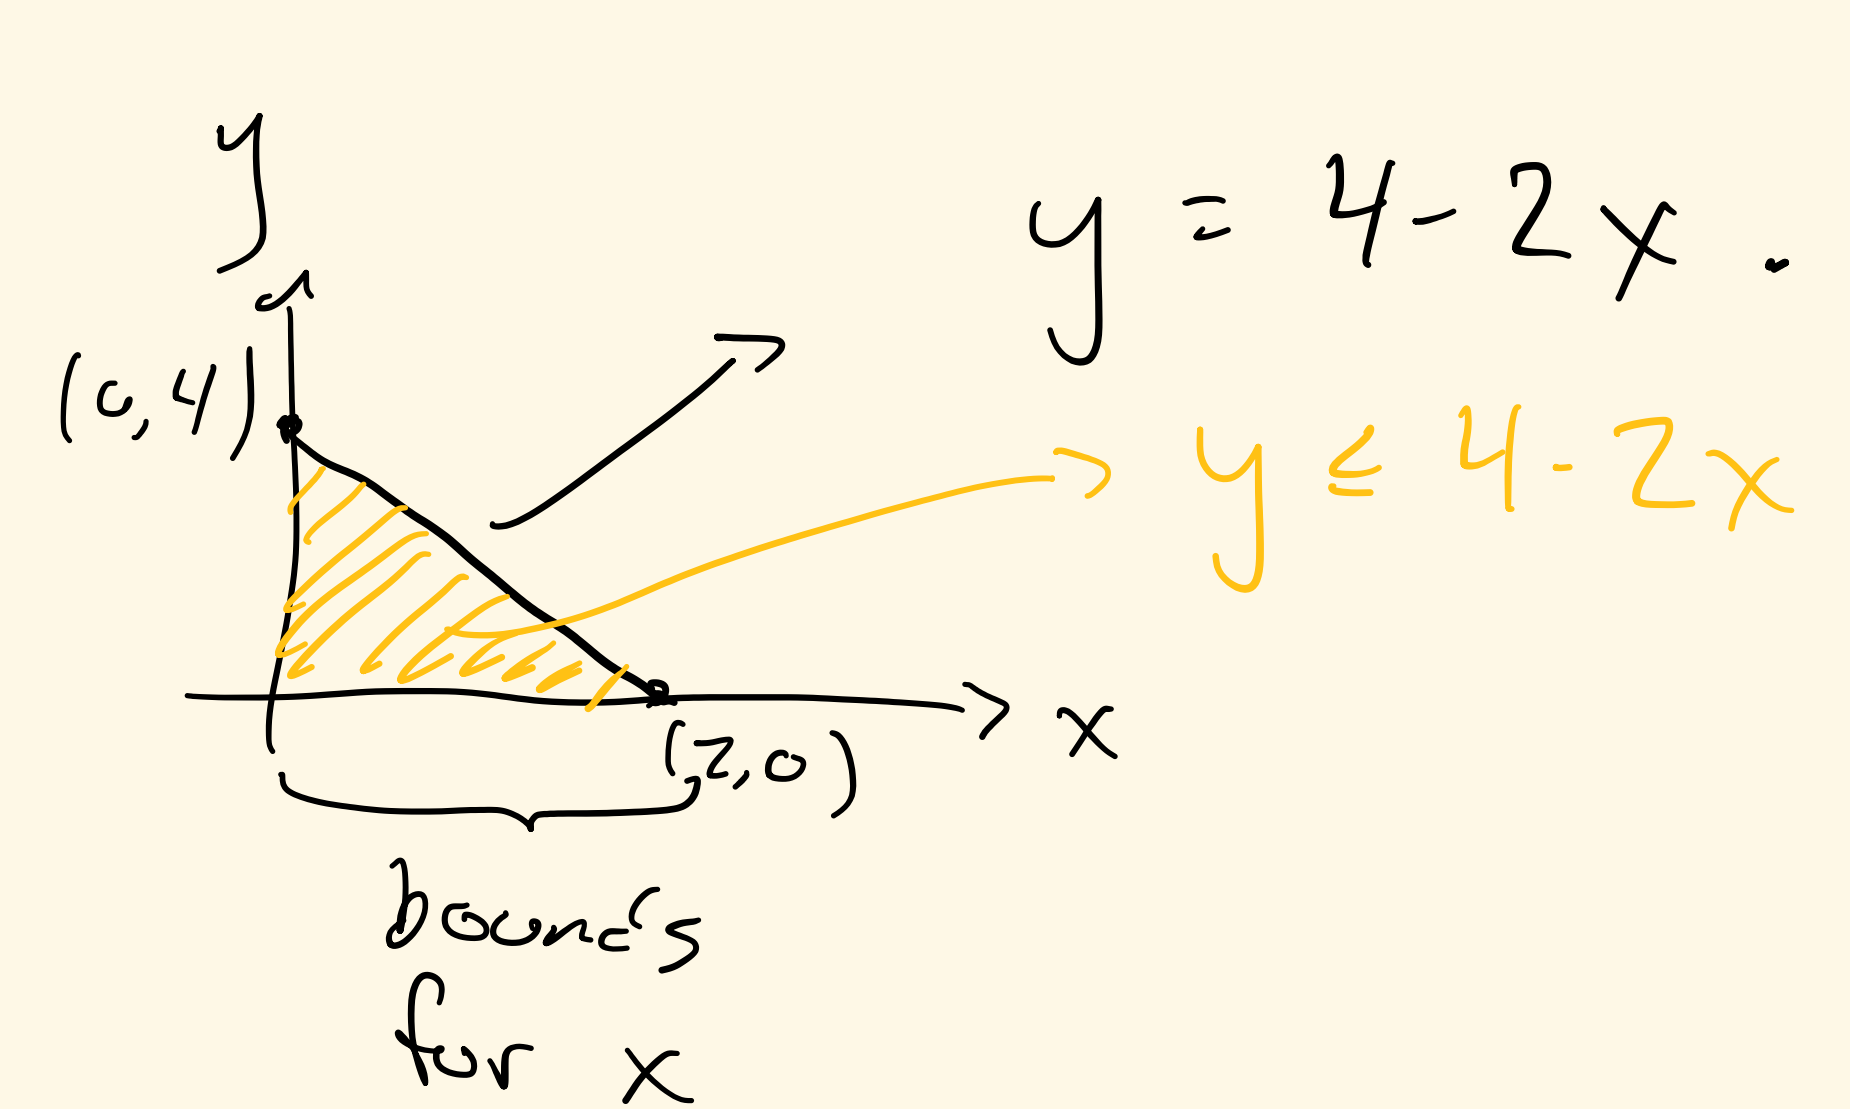 y
y = 4 - 2x .
(0,4)
y ≤ 4 - 2x
x
(2,0)
bounds
for x